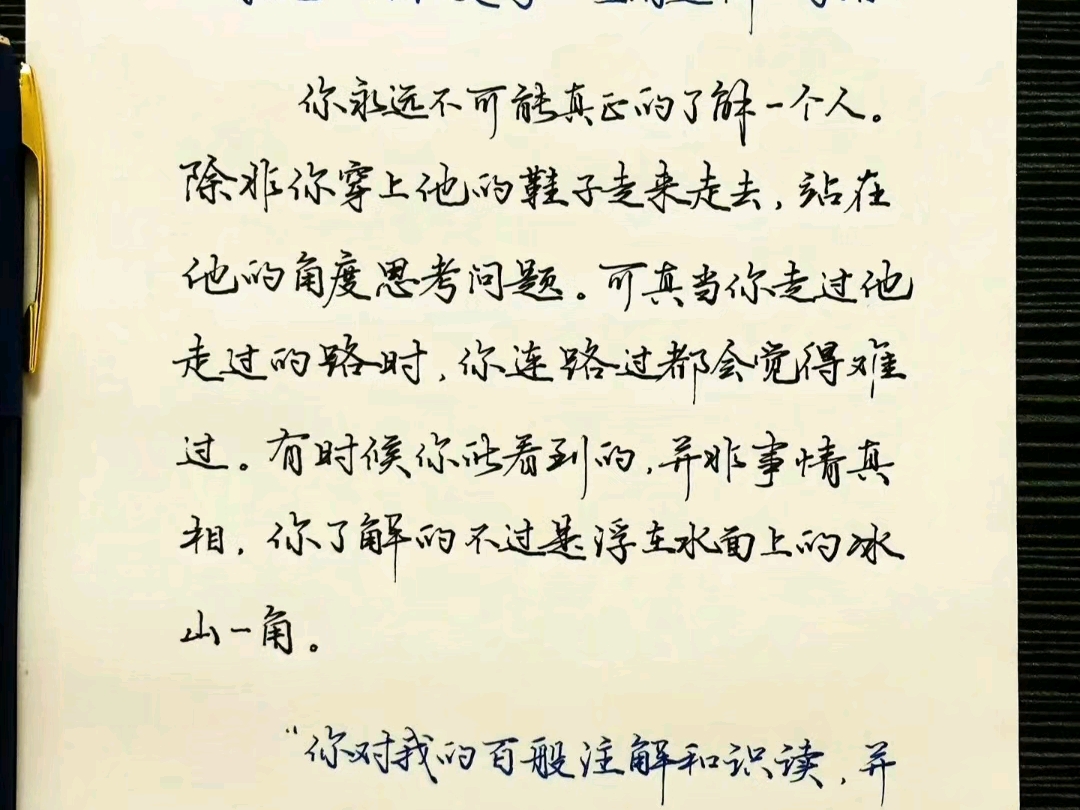 你永远不可能真正的了解一个人。
除非你穿上他的鞋子走来走去，站在
他的角度思考问题。可真当你走过他
走过的路时，你连路过都会觉得难
过。有时候你所看到的，并非事情真
相，你了解的不过是浮在水面上的冰
山一角。
“你对我的百般注解和识读，并